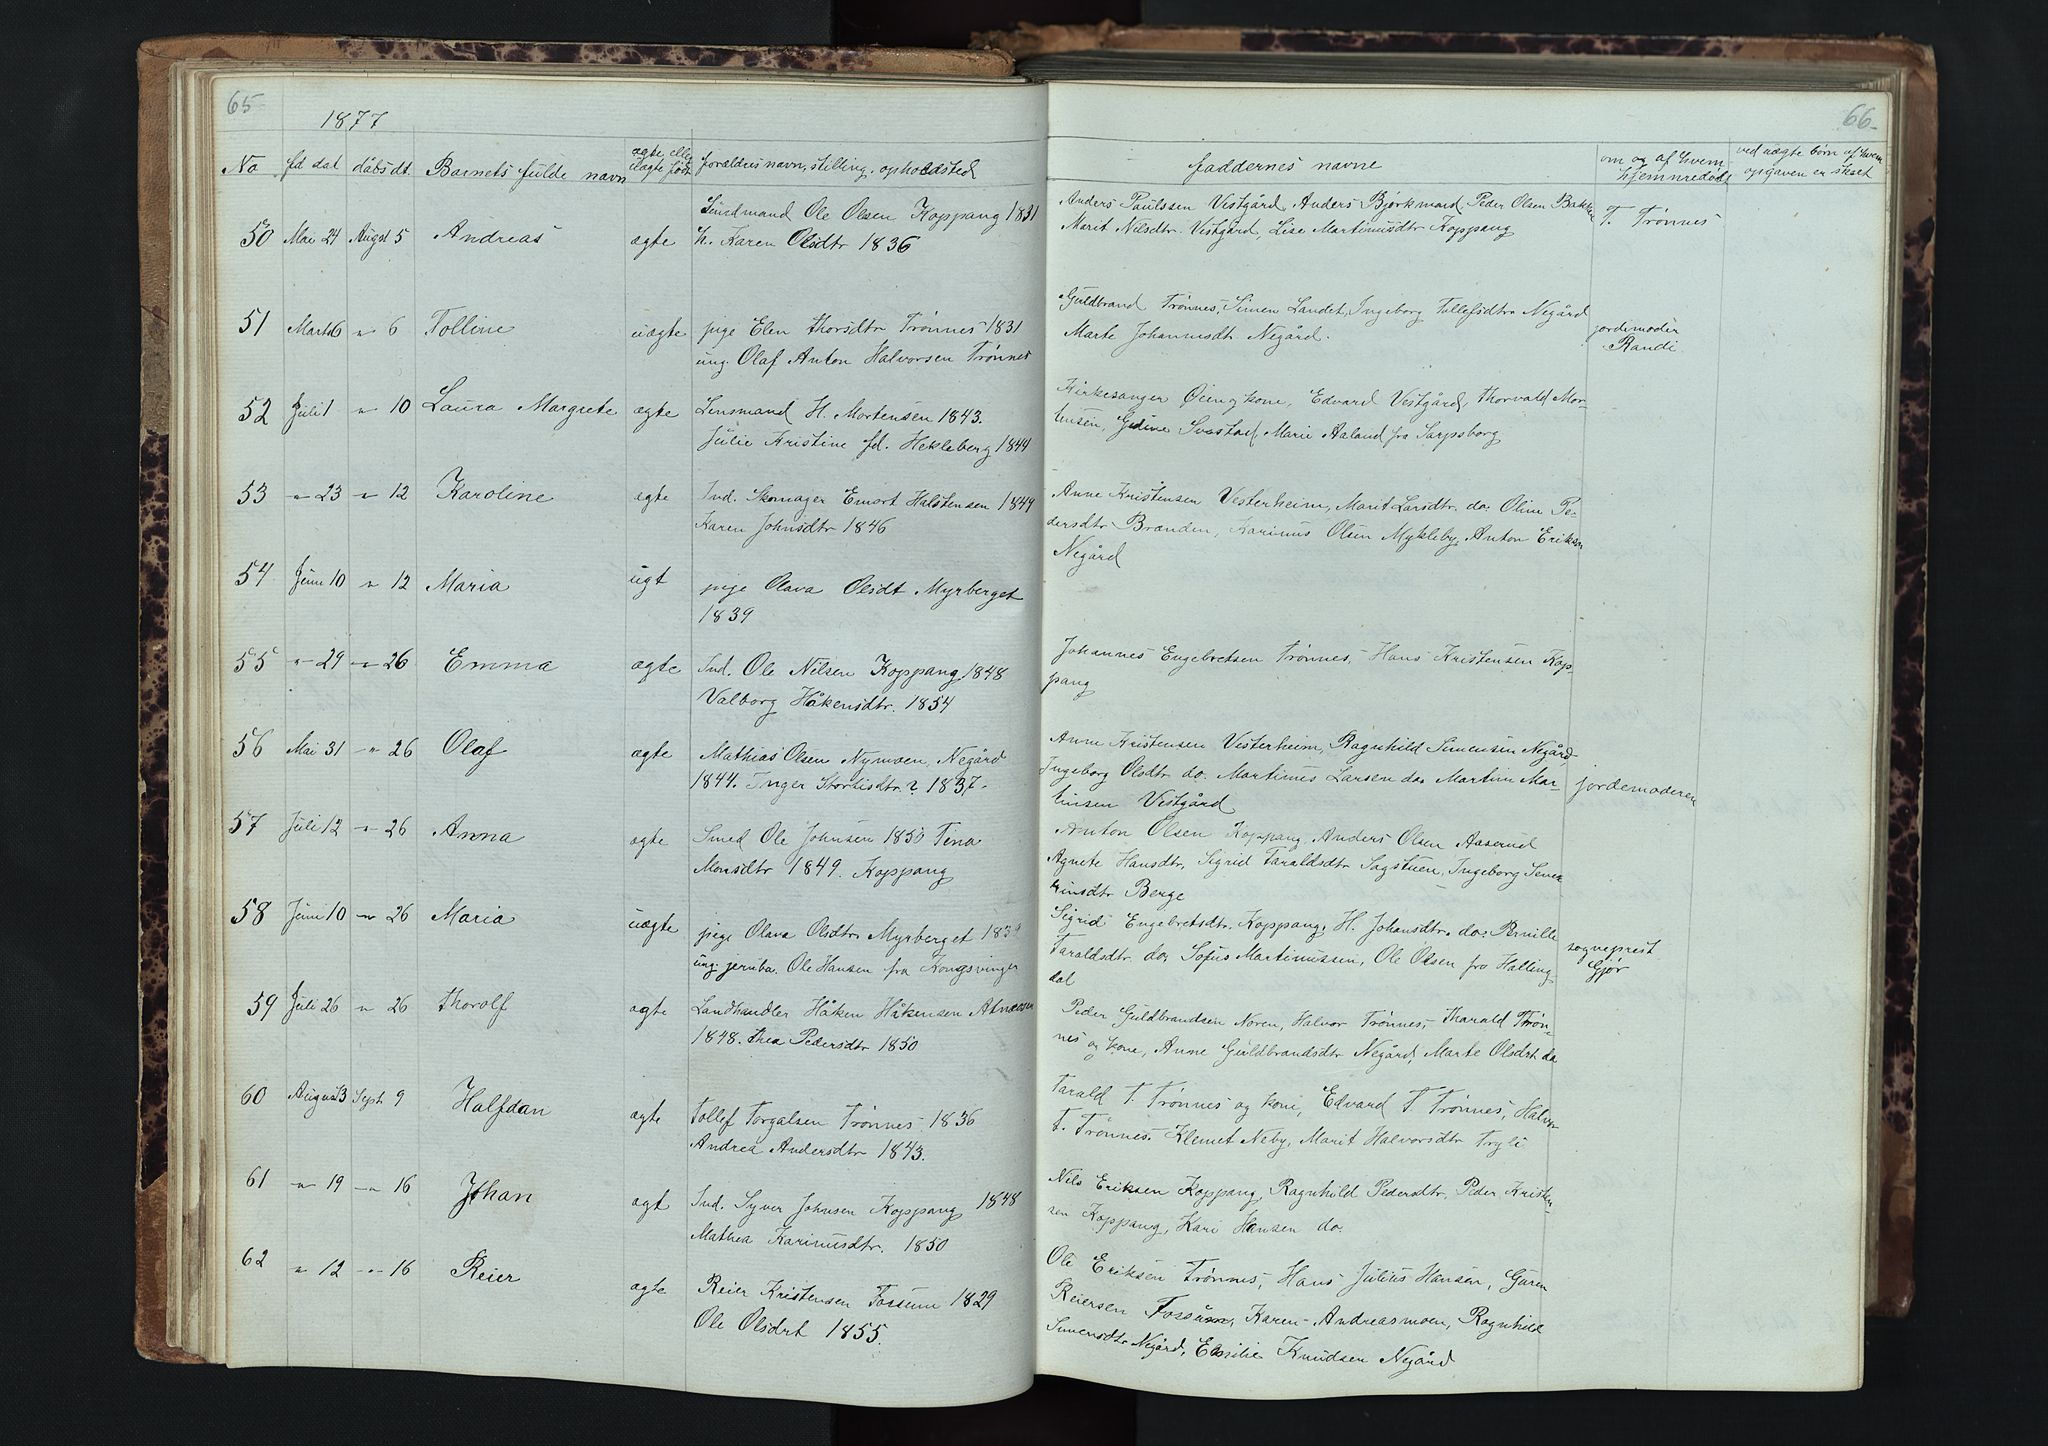 65
1877
No fd dat dåbsdt. Barnets fulde navn ægte eller uægte født forældres navn, stilling, opholdsted
Ole Olsen Koppang 1831
50 Mai 24 Augst 5 Andreas ægte h. Karen Olsdtr 1836
51 Marts 6 " 6 Tolline uægte pige Elen Thorsdtr Trønnes 1831
ung. Olaf Anton Halvorsen Trønnes
52 Juli 1 " 10 Laura Margrete ægte Lensmand H. Mortensen 1843.
Julie Kristine fd. Hekleberg 1844
53 " 23 " 12 Karoline ægte Ind. Skomager Emort Halstensen 1849
Karen Johnsdtr 1846
54 Juni 10 " 12 Maria ugt pige Olava Olsdt Myrberget
1839
55 " 29 " 26 Emma ægte Ind. Ole Nilsen Koppang 1848
Valborg Håkensdtr. 1854
56 Mai 31 " 26 Olaf ægte Mathias Olsen Nymoen, Negård
1844. Inger 1837.
57 Juli 12 " 26 Anna ægte Smed Ole Johnsen 1850 Tina
Monsdtr 1849. Koppang
58 Juni 10 " 26 Maria uægte pige Olava Olsdtr Myrberget 1839
ung. jernba. Ole Hansen fra Kongsvinger
59 Juli 26 " 26 Thorolf ægte Landhandler Håken Håkensen Atneosen
1848. Thea Pedersdtr 1850
60 August 3 Sept 9 Halfdan ægte Tollef Torgalsen Trønnes 1836
Andrea Andersdtr 1843.
61 " 19 " 16 Johan ægt Ind. Syver Johnsen Koppang 1848
Mathea Karinusdtr. 1850
62 " 12 " 16 Reier ægte Reier Kristensen Fossum 1829
Ole Olsdrt 1855.
66
faddernes navne om og af hvem hjemmedøbt ved uægte børn af hvem opgaven er skeet
Anders Paulssen Vestgård, Anders Bjørkmand, Peder Olsen Bakken T. Trønnes
Marit Nilsdtr. Vestgård, Lise Martinusdtr Koppang
Guldbrand Trønnes, Simen Landet, Ingeborg Tollefsdtr Negård
Marte Johannesdt Negård. jordemoder
Randi
Kirkesanger Øien og kone, Edvard Vestgård, Thorvald Mor-
tensen, Marie Aaland fra Sarpsborg
Anne Kristensen Vesterheim, Marit Larsdtr. do. Oline Pe-
dersdtr Brænden, Karinus Olsen Mykleby, Anton Eriksen
Negård
Johannes Engebretsen Trønnes, Hans Kristensen Kop-
pang
Anne Kristensen Vesterheim, Ragnhild Simensen Negård
Ingeborg Olsdtr do. Martinus Larsen do. Martin Mar- jordemoderen
tinsen Vestgård
Anton Olsen Koppang, Anders Olsen Aaserud
Agnete Hansdtr, Sigrid Taraldsdtr Sagstuen, Ingeborg
Berge
Sigrid Engebretsdtr. Koppang. H. Johansdtr. do. Pernille sogneprest
Taraldsdtr. do. Sofus Martinussen, Ole Olsen fra Halling- Gjør
dal
Peder Guldbrandsen Noren, Halvor Trønnes, Tharald Trøn-
nes og kone, Anne Guldbrandsdtr Negård, Marte Olsdrt do
Tarald T. Trønnes og kone, Edvard T. Trønnes, Halvor
T. Trønnes. Klemet Neby, Marit Halvorsdtr Tryli
Nils Eriksen Koppang, Ragnhild Pedersdtr, Peder Kristen-
sen Koppang, Kari Hansen do.
Ole Eriksen Trønnes, Hans Julius Hansen, Guren
Reiersen Fossum, Karen Andreasmoen, Ragnhild
Simensdtr Negård, Emilie Knudsen Negård